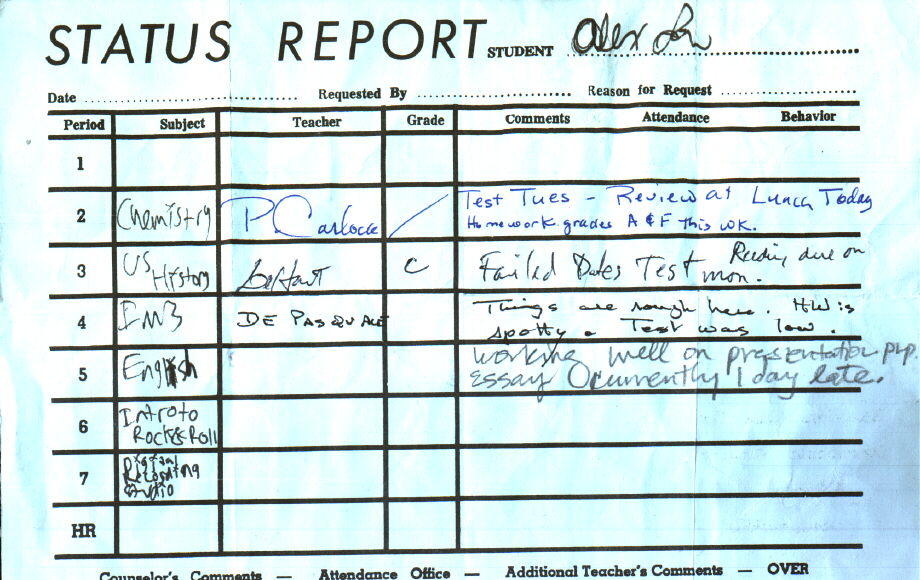 STATUS REPORT STUDENT Alex
Date Requested By Reason for Request
Period Subject Teacher Grade Comments Attendance Behavior
1
2 Chemistry P. Carlock Test Tues - Review at Lunch Today
Homework grades A & F this wk.
3 US History C Failed Dates Test Reading due on
mon.
4 IM3 DE PASQUALE Things are rough here. HW is
spotty. Test was low.
5 English working well on presentation prep.
Essay currently 1 day late.
6 Intro to
Rock & Roll
7 Digital
Recording
Audio
HR
Counselor's Comments — Attendance Office — Additional Teacher's Comments — OVER